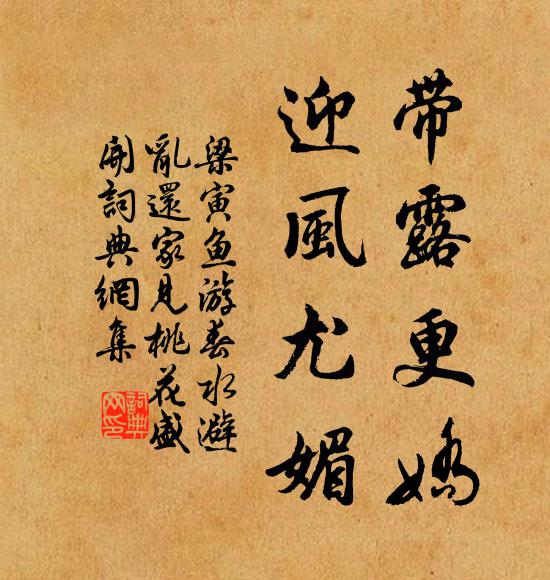 带露更娇
迎風尤媚
梁寅魚游春水避
亂還家見桃花盛
開詞典網集
詞典
网印